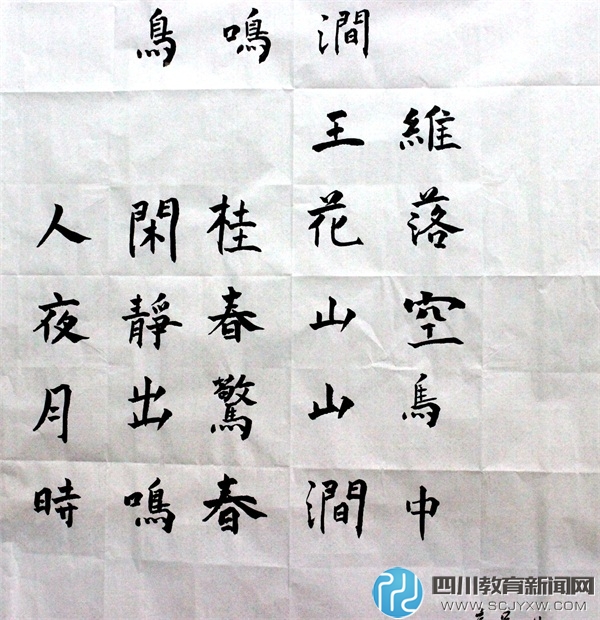 鳥鳴澗
王維
人閑桂花落
夜靜春山空
月出驚山鳥
時鳴春澗中
四川教育新闻网
WWW.SCJYXW.COM